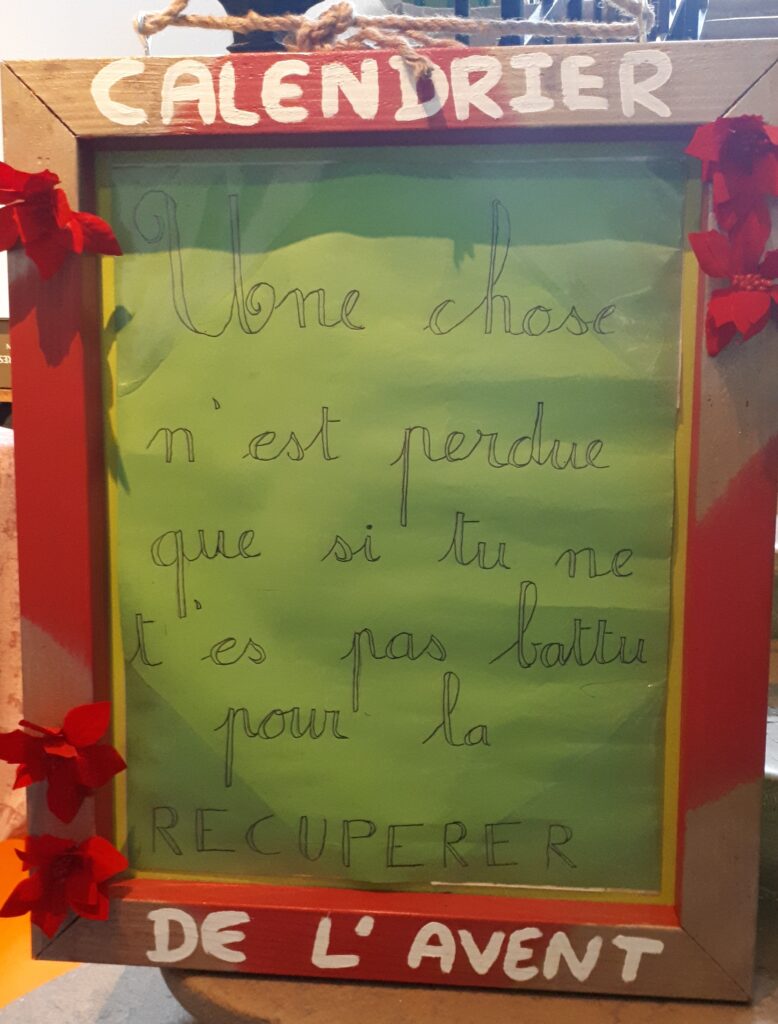 CALENDRIER
Une chose
n'est perdue
que si tu ne
t'es pas battu
pour la
RECUPERER
DE L'AVENT